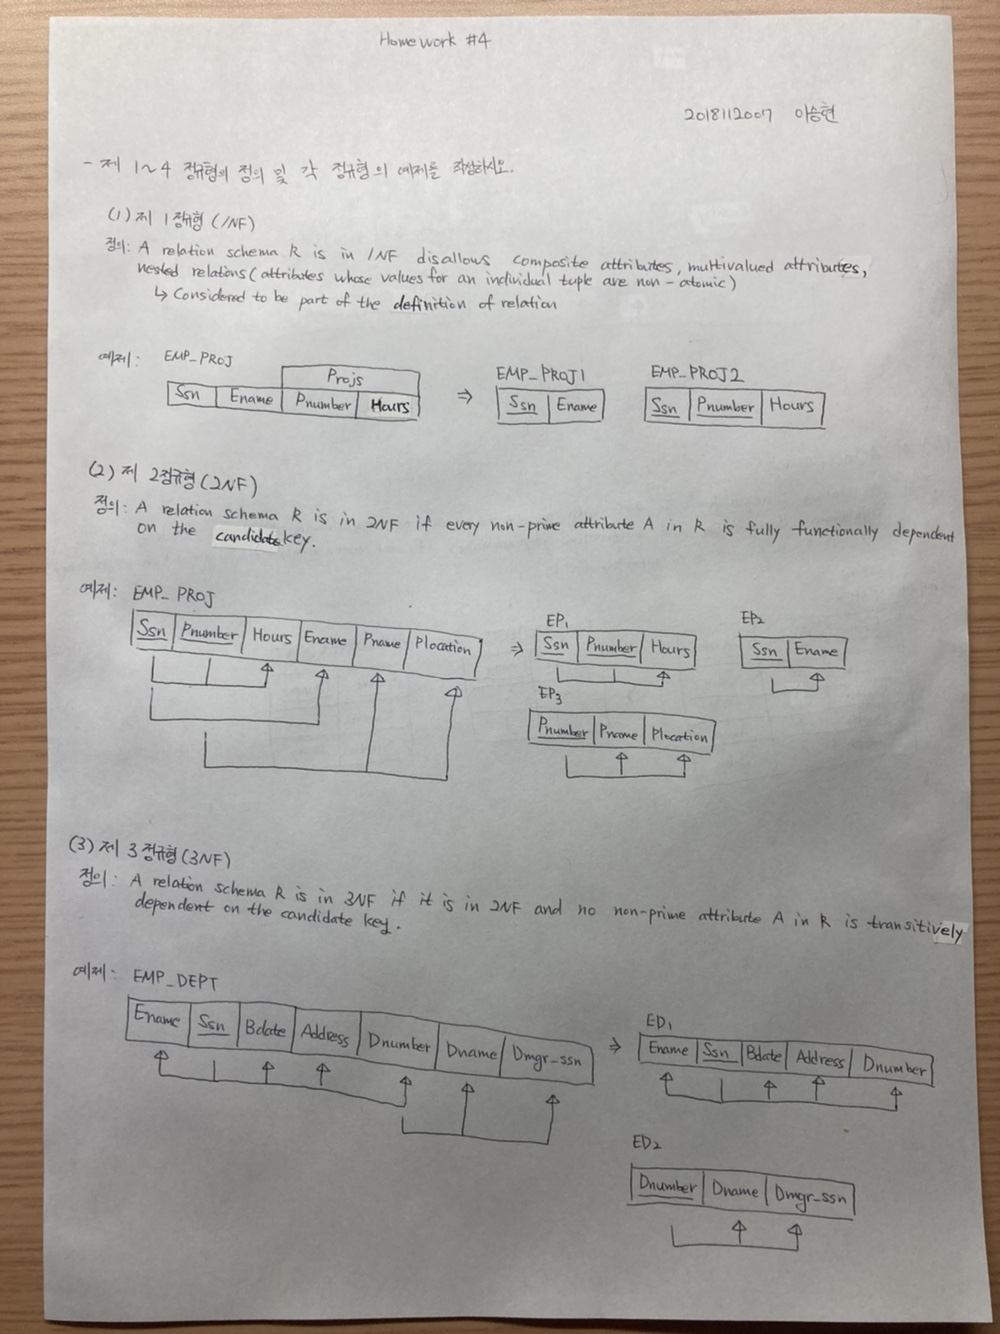 Homework #4
2018112007 이승현
- 제 1~4 정규형의 정의 및 각 정규형의 예제를 작성하시오.
(1) 제 1정규형 (1NF)
정의: A relation schema R is in 1NF disallows composite attributes, multivalued attributes,
nested relations (attributes whose values for an individual tuple are non-atomic)
↳ Considered to be part of the definition of relation
예제: EMP_PROJ
Projs
Ssn Ename Pnumber Hours
⇒
EMP_PROJ1
Ssn Ename
EMP_PROJ2
Ssn Pnumber Hours
(2) 제 2정규형 (2NF)
정의: A relation schema R is in 2NF if every non-prime attribute A in R is fully functionally dependent
on the candidate key.
예제: EMP_PROJ
Ssn Pnumber Hours Ename Pname Plocation
⇒
EP1
Ssn Pnumber Hours
EP2
Ssn Ename
EP3
Pnumber Pname Plocation
(3) 제 3정규형 (3NF)
정의: A relation schema R is in 3NF if it is in 2NF and no non-prime attribute A in R is transitively
dependent on the candidate key.
예제: EMP_DEPT
Ename Ssn Bdate Address Dnumber Dname Dmgr_ssn
⇒
ED1
Ename Ssn Bdate Address Dnumber
ED2
Dnumber Dname Dmgr_ssn